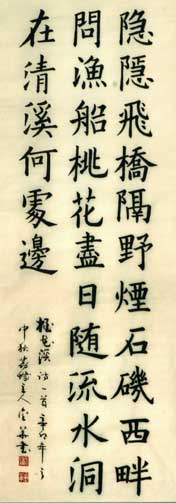 隐隱飛橋隔野煙石磯西畔
問漁船桃花盡日随流水洞
在清溪何處邊
桃花溪詩一首辛卯年之